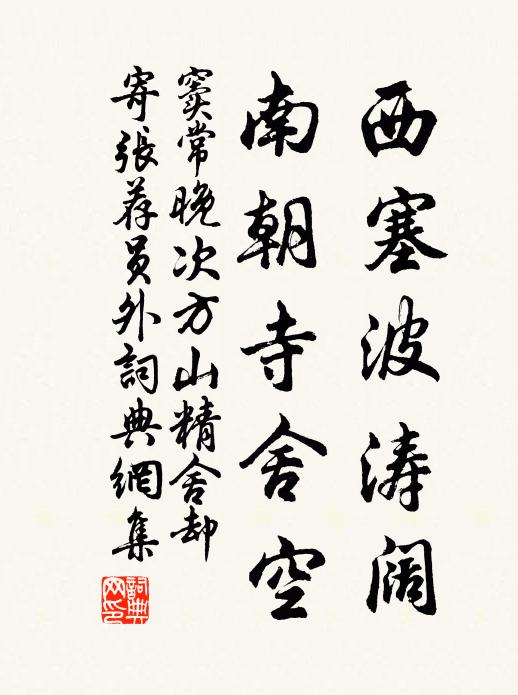 西塞波涛阔
南朝寺舍空
窦常晚次方山精舍却
寄張荐员外詞典網集
詞典